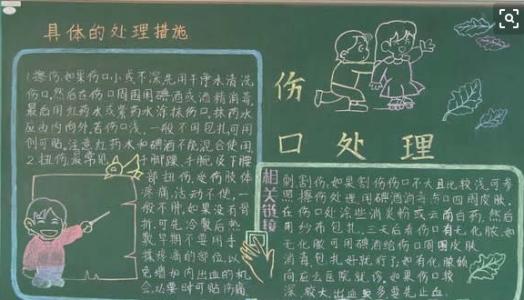 具体的处理措施
1.擦伤,如果伤口小或不深先用干净水清洗
伤口,然后在伤口周围用碘酒或酒精消毒,
最后用红药水或紫药水涂抹伤口,抹药水
应由内向外,若伤口浅,一般不用包扎,可用
创可贴,注意红药水和碘酒不能混合使用.
2.扭伤,最常见 于脚踝、手腕及下腰
部扭伤,受伤肢体
疼痛,活动不便,一
般不肿,如果没有骨
折,可先冷敷后热
敷早期不要用手
揉疼痛的部位,以
免增加内出血的机
会,必要时可贴伤痛
伤
口处理
相关链接
刺、割伤,如果割伤伤口不大且比较浅,可参
照擦伤处理,用碘酒消毒伤口四周皮肤,
在伤口处涂些消炎粉或云南白药,然后
用纱布包扎,三天后看伤口有无化脓,如
无化脓可用碘酒给伤口周围皮肤
消毒,包扎好就行了,如有化脓倾
向应去医院就诊,如果伤口较
深,较大,出血较多要先止血